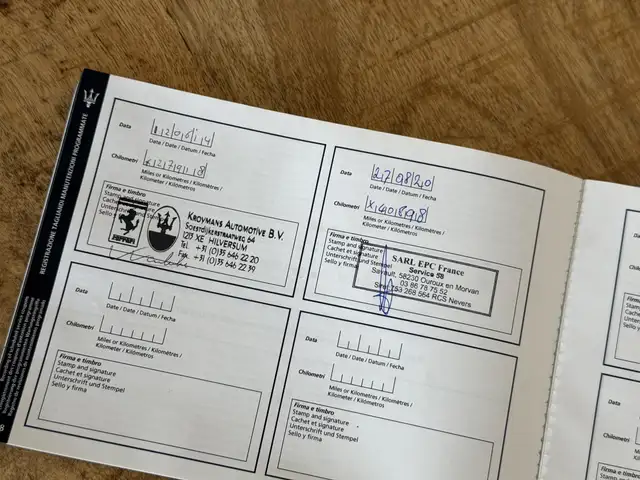 REGISTRAZIONE TAGLIANDI MANUTENZIONI PROGRAMMATE
Data
120614
Date / Date / Datum / Fecha
Chilometri
Miles or Kilometres / Kilomètres /
Kilometer / Kilómetros
Firma e timbro
Stamp and signature
Cachet et signature
Sello y firma
Ferrari
KROYMANS AUTOMOTIVE B.V.
SOESTDIJKERSTRAATWEG 64
1213 XE HILVERSUM
Tel. +31 (0)35 646 22 20
Fax. +31 (0)35 646 22 39
Data
270820
Date / Date / Datum / Fecha
Chilometri
Miles or Kilometres / Kilomètres /
Kilometer / Kilómetros
Firma e timbro
Stamp and signature
Cachet et signature
Unterschrift und Stempel
Sello y firma
SARL EPC France
Service 58
58230 Ouroux en Morvan
03 86 78 75 52
RCS Nevers
Data
Date / Date / Datum / Fecha
Chilometri
Miles or Kilometres / Kilomètres /
Kilometer / Kilómetros
Firma e timbro
Stamp and signature
Cachet et signature
Unterschrift und Stempel
Sello y firma
Data
Date / Date / Datum / Fecha
Chilometri
Miles or Kilometres / Kilomètres /
Kilometer / Kilómetros
Firma e timbro
Stamp and signature
Cachet et signature
Unterschrift und Stempel
Sello y firma